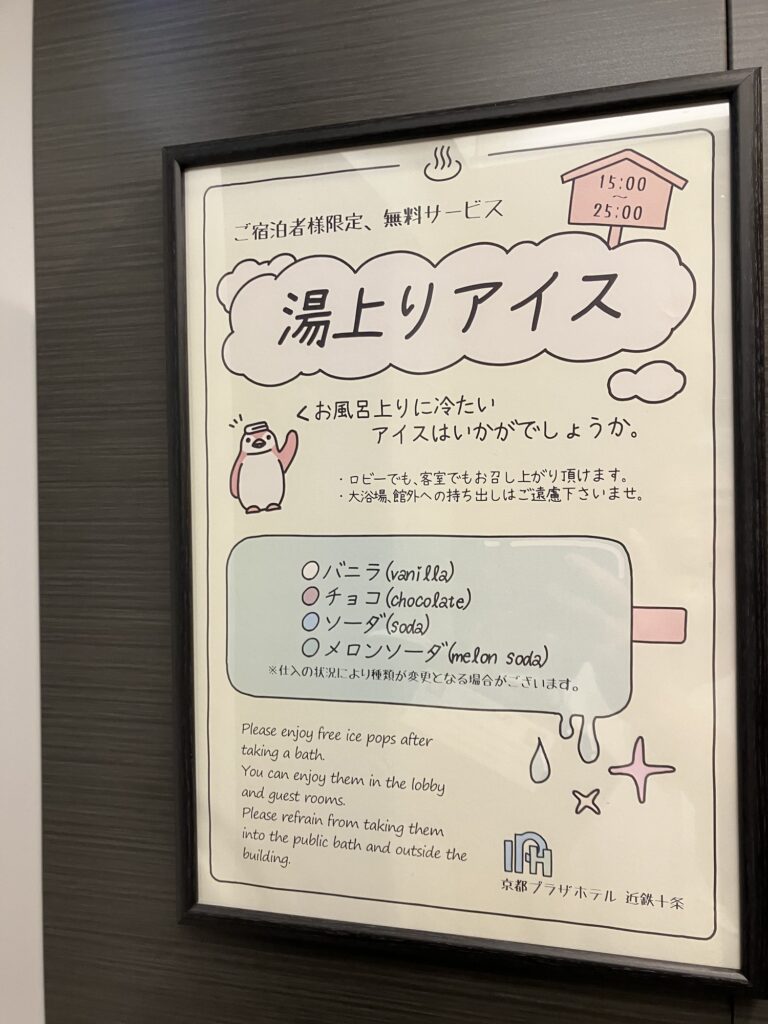 15:00
~
25:00
ご宿泊者様限定、無料サービス
湯上りアイス
くお風呂上りに冷たい
アイスはいかがでしょうか。
・ロビーでも、客室でもお召し上がり頂けます。
・大浴場、館外への持ち出しはご遠慮下さいませ。
バニラ(vanilla)
チョコ(chocolate)
ソーダ(soda)
メロンソーダ(melon soda)
※仕入の状況により種類が変更となる場合がございます。
Please enjoy free ice pops after
taking a bath.
You can enjoy them in the lobby
and guest rooms.
Please refrain from taking them
into the public bath and outside the
building.
IPH
京都プラザホテル 近鉄十条